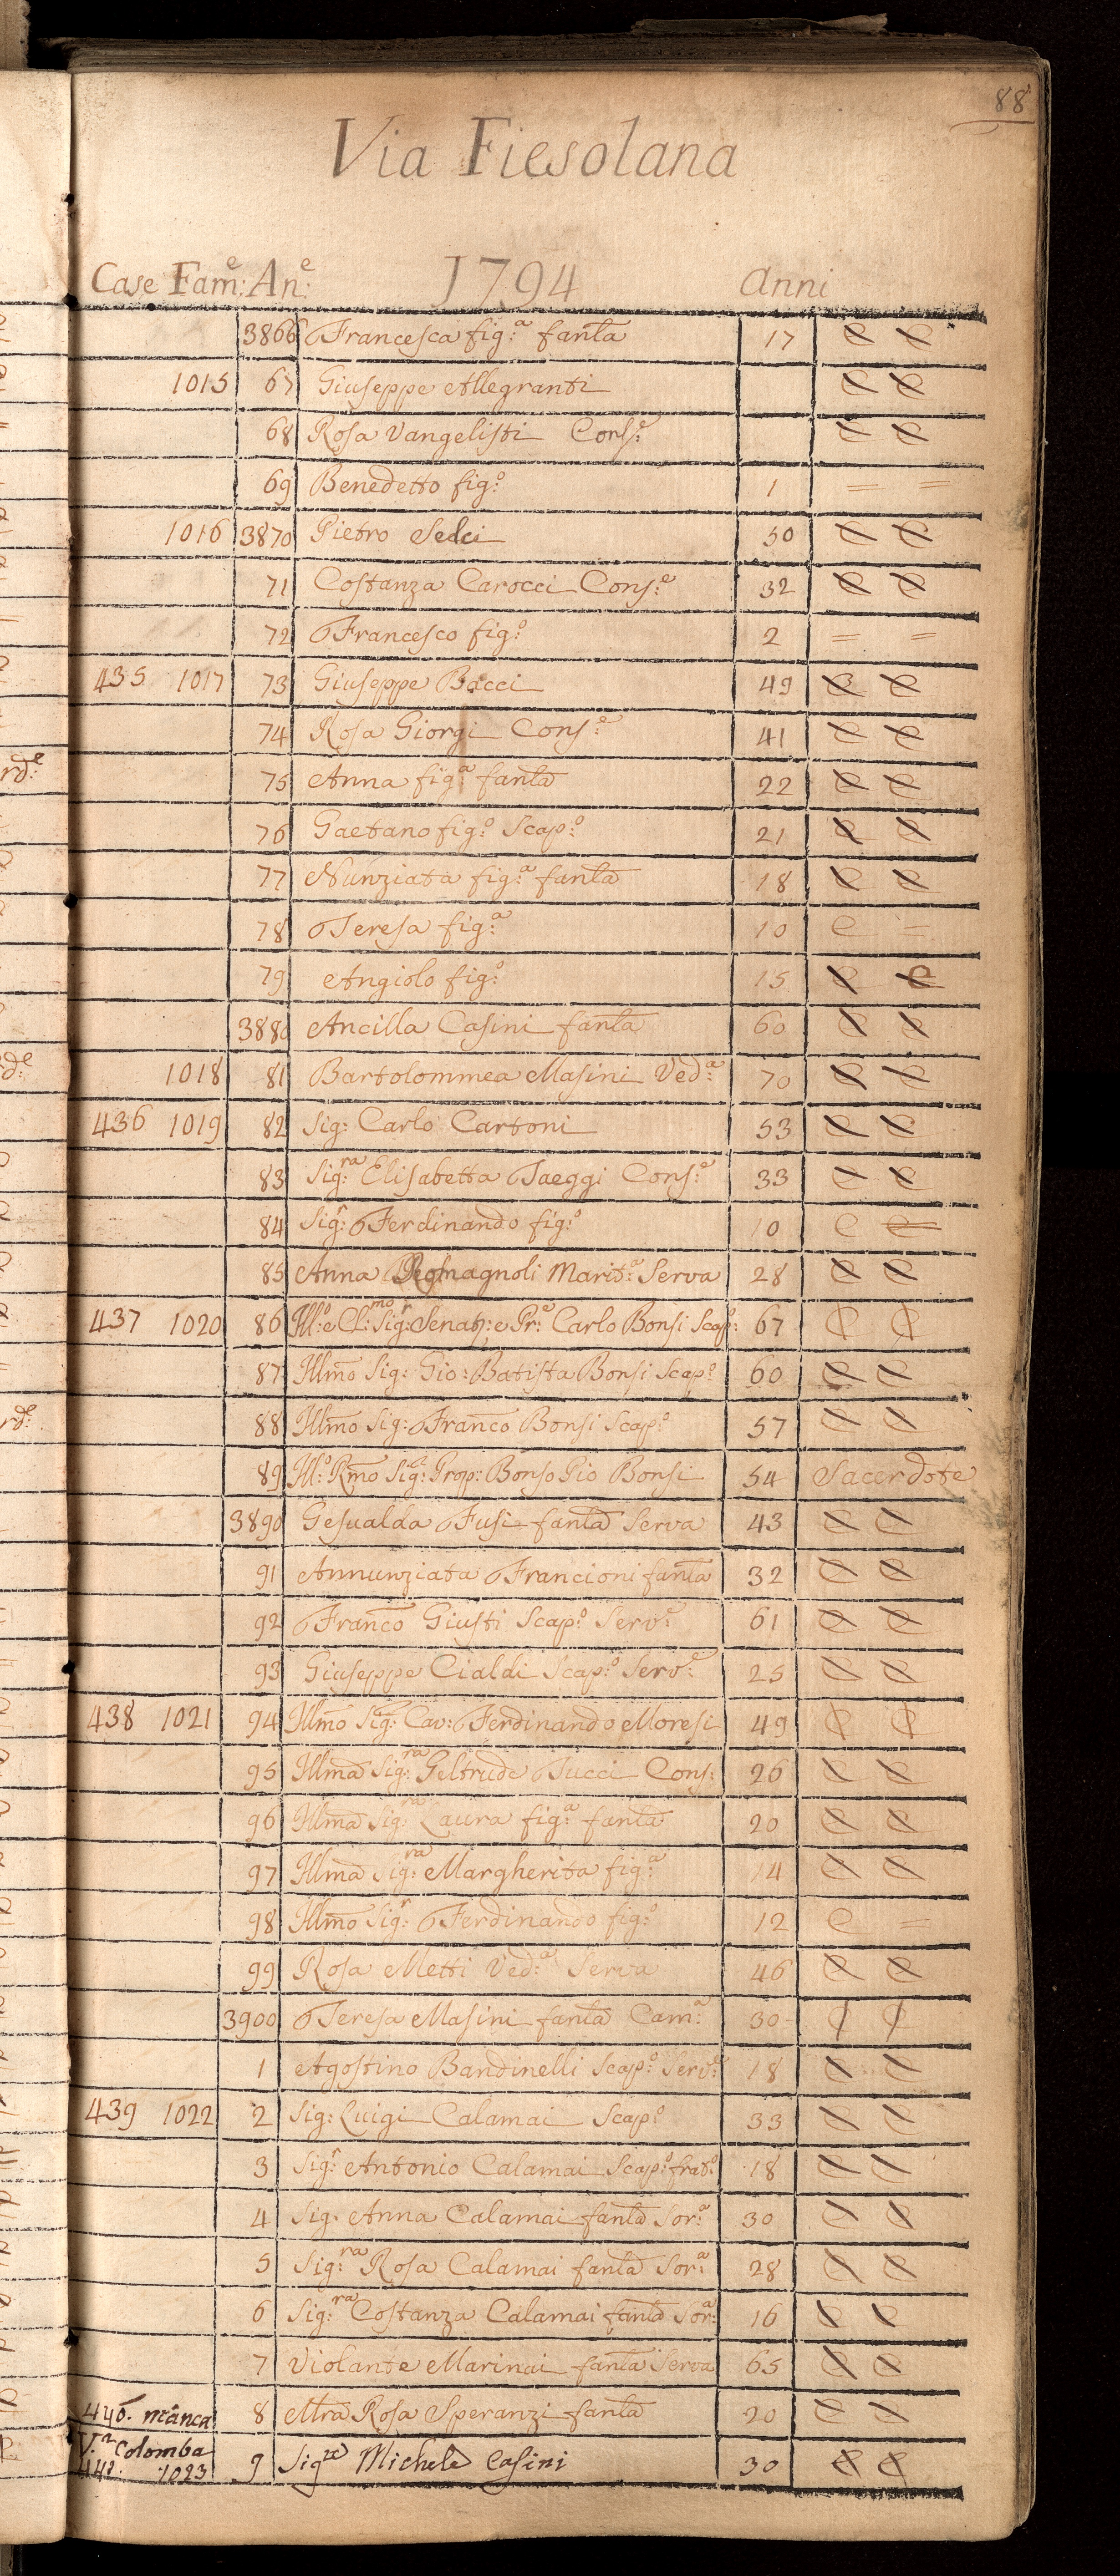 88
Via Fiesolana
Case Fam:e An:e 1794 anni
3866 Francesca fig:a fanla 17 e e
1015 67 Giuseppe Allegranti e e
68 Rosa Vangelisti Cons:e e e
69 Benedetto fig:o 1 = =
1016 3870 Pietro Selci 50 e e
71 Costanza Carocci Cons:e 32 e e
72 Francesco fig:o 2 = =
435 1017 73 Giuseppe Bacci 49 e e
74 Rosa Giorgi Cons:e 41 e e
75 Anna fig:a fanla 22 e e
76 Gaetano fig:o Scap:o 21 e e
77 Nunziata fig:a fanla 18 e e
78 Teresa fig:a 10 e =
79 Angiolo fig:o 15 e e
3880 Ancilla Casini fanla 60 e e
1018 81 Bartolommea Masini Ved:a 70 e e
436 1019 82 Sig: Carlo Cartoni 53 e e
83 Sig:ra Elisabetta Taeggi Cons:e 33 e e
84 Sig:r Ferdinando fig:o 10 e =
85 Anna Romagnoli Marit:a Serva 28 e e
437 1020 86 Ill:o e Cl:mo Sig:r Senat:r e Pr:e Carlo Bonsi Scap: 67 C C
87 Illmo Sig: Gio: Batista Bonsi Scap:o 60 e e
88 Illmo Sig: Franco Bonsi Scap:o 57 e e
89 Ill:o Rmo Sig: Prop: Bonso Pio Bonsi 54 Sacerdote
3890 Gesualda Fusi fanla Serva 43 e e
91 Annunziata Francioni fanla 32 e e
92 Franco Giusti Scap:o Serv:e 61 e e
93 Giuseppe Cialdi Scap:o Serv:e 25 e e
438 1021 94 Illmo Sig: Cav: Ferdinando Moresi 49 C C
95 Illma Sig:ra Geltrude Tucci Cons: 26 e e
96 Illma Sig:ra Laura fig:a fanla 20 e e
97 Illma Sig:ra Margherita fig:a 14 e e
98 Illmo Sig:r Ferdinando fig:o 12 e =
99 Rosa Metti Ved:a Serva 46 e e
3900 Teresa Masini fanla Cam:a 30 C C
1 Agostino Bandinelli Scap:o Serv:e 18 e e
439 1022 2 Sig: Luigi Calamai Scap:o 33 e e
3 Sig:r Antonio Calamai Scap:o frat:o 18 e e
4 Sig. Anna Calamai fanla Sor:a 30 e e
5 Sig:ra Rosa Calamai fanla Sor:a 28 e e
6 Sig:ra Costanza Calamai fanla Sor:a 16 e e
7 Violante Marinai fanla Serva 65 e e
440. manca 8 Mra Rosa Speranzi fanla 20 e e
V.a Colomba
441. 1023 9 Sig:re Michele Casini 30 e e